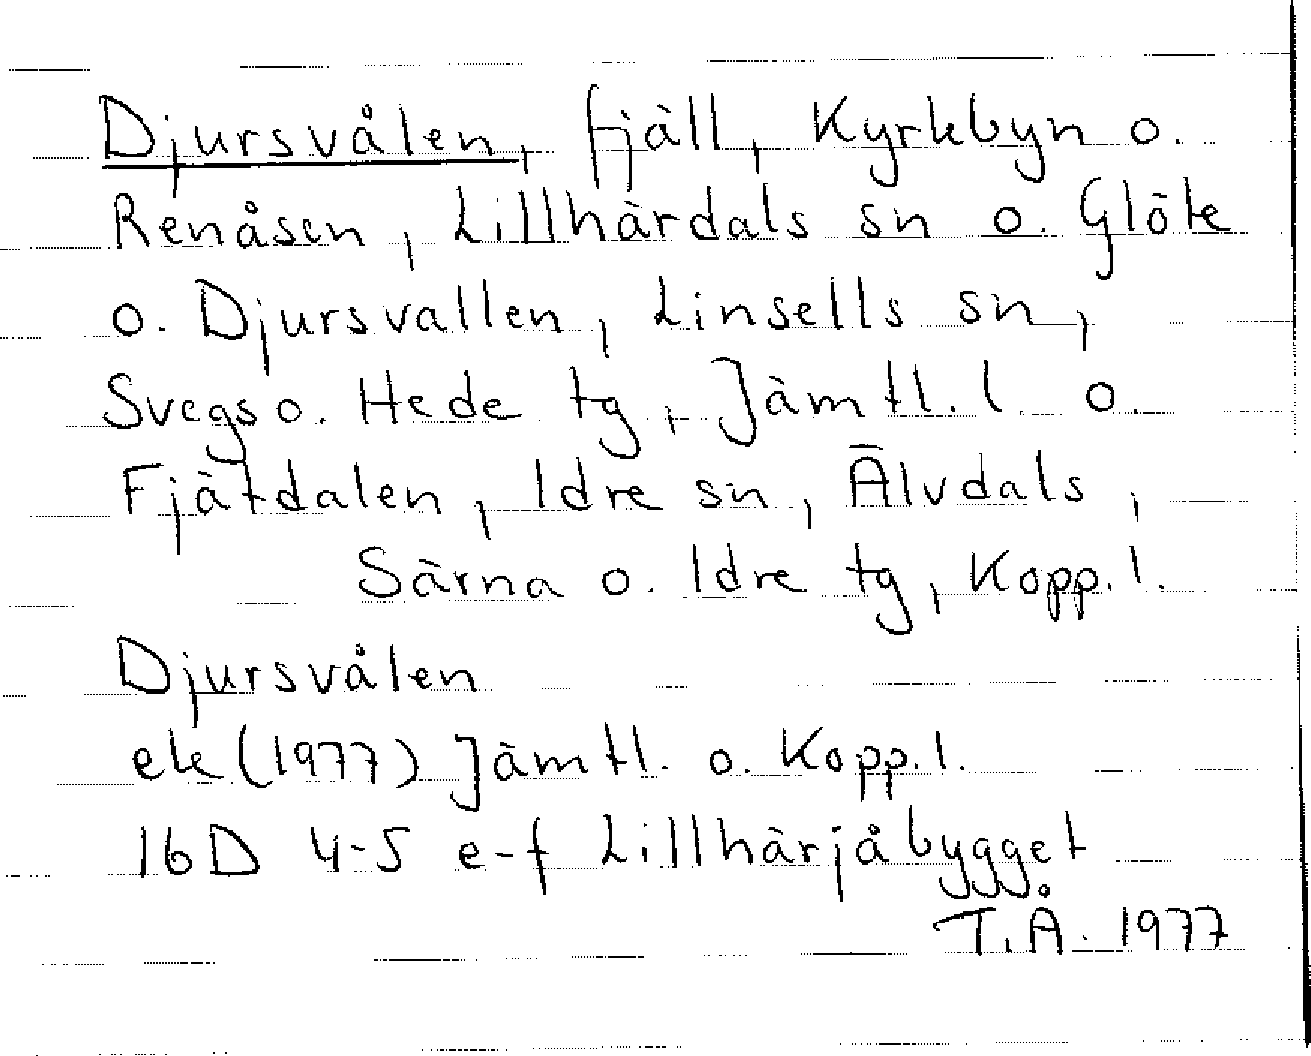 Djursvålen, fjäll, Kyrkbyn o.
Renåsen, Lillhärdals sn o. Glöte
o. Djursvallen, Linsells sn,
Svegs o. Hede tg, Jämtl. l o.
Fjätdalen, Idre sn, Älvdals,
Särna o. Idre tg, Kopp. l.
Djursvålen
ek (1977) Jämtl. o. Kopp. l.
16D 4-5 e-f Lillhärjåbygget
T.Å. 1977